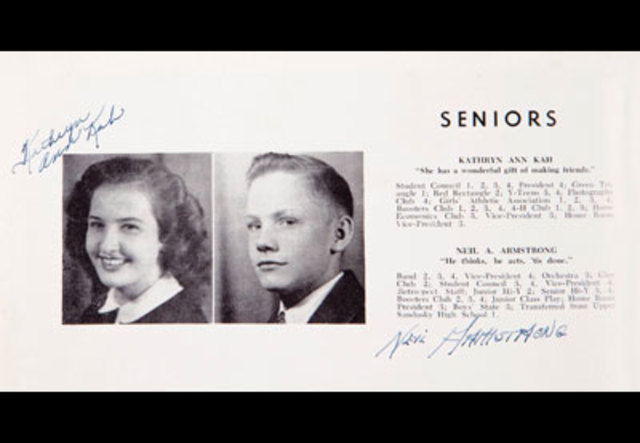 Kathryn
Ann Kah
SENIORS
KATHRYN ANN KAH
"She has a wonderful gift of making friends."
Student Council 1, 2, 3, 4, President 4; Green Tri-
angle 1; Red Rectangle 2; Y-Teens 3, 4; Photography
Club 4; Girls' Athletic Association 1, 2, 3, 4;
Boosters Club 1, 2, 3, 4; 4-H Club 1, 2, 3; Home
Economics Club 3, Vice-President 3; Home Room
Vice-President 3.
NEIL A. ARMSTRONG
"He thinks, he acts, 'tis done."
Band 2, 3, 4, Vice-President 4; Orchestra 3; Glee
Club 2; Student Council 3, 4, Vice-President 4;
Retrospect Staff; Junior Hi-Y 2; Senior Hi-Y 3, 4;
Boosters Club 2, 3, 4; Junior Class Play; Home Room
President 3; Boys' State 3; Transferred from Upper
Sandusky High School 1.
Neil Armstrong